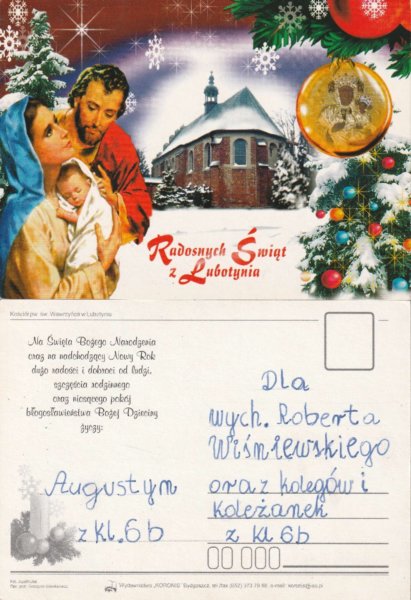 Radosnych Świąt
z Lubotynia
Kościół p.w. św. Wawrzyńca w Lubotyniu
Na Święta Bożego Narodzenia
oraz na nadchodzący Nowy Rok
dużo radości i dobroci od ludzi,
szczęścia rodzinnego
oraz niosącego pokój
błogosławieństwa Bożej Dzieciny
życzy:
Augustym
z kl. 6b
Dla
wych. Roberta
Wiśniewskiego
oraz kolegów i
koleżanek
z kl 6b
Wydawnictwo "KORONIS" Bydgoszcz,